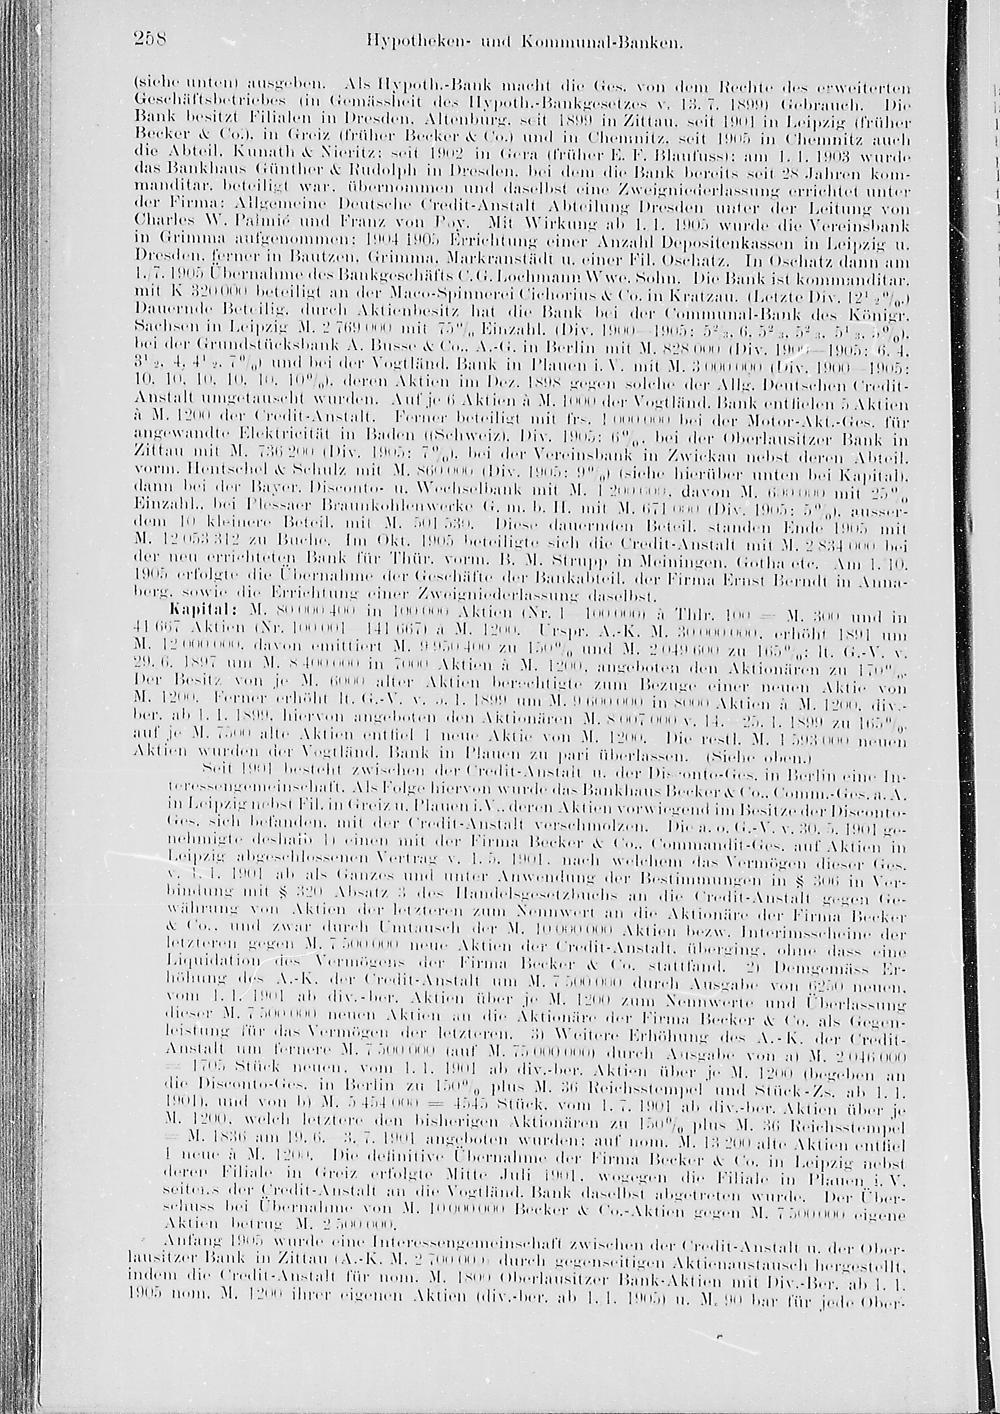 258 Hypotheken- und Kommunal-Banken.
(siehe unten) ausgeben. Als Hypoth.-Bank macht die Ges. von dem Rechte des erweiterten
Geschäftsbetriebes (in Gemässheit des Hypoth.-Bankgesetzes v. 13. 7. 1899) Gebrauch. Die
Bank besitzt Filialen in Dresden, Altenburg, seit 1899 in Zittau, seit 1901 in Leipzig (früher
Becker & Co.), in Greiz (früher Becker & Co.) und in Chemnitz, seit 1905 in Chemnitz auch
die Abteil. Kunath & Nieritz; seit 1902 in Gera (früher E. F. Blaufuss); am 1. 1. 1903 wurde
das Bankhaus Günther & Rudolph in Dresden, bei dem die Bank bereits seit 28 Jahren kom-
manditar. beteiligt war, übernommen und daselbst eine Zweigniederlassung errichtet unter
der Firma: Allgemeine Deutsche Credit-Anstalt Abteilung Dresden unter der Leitung von
Charles W. Palmié und Franz von Roy. Mit Wirkung ab 1. 1. 1905 wurde die Vereinsbank
in Grimma aufgenommen; 1904/1905 Errichtung einer Anzahl Depositenkassen in Leipzig u.
Dresden, ferner in Bautzen, Grimma, Markranstädt u. einer Fil. Oschatz. In Oschatz dann am
1./7. 1905 Übernahme des Bankgeschäfts C. G. Lochmann Wwe. Sohn. Die Bank ist kommanditar.
mit K 320 000 beteiligt an der Maco-Spinnerei Cichorius & Co. in Kratzau. (Letzte Div. 12½%.)
Dauernde Beteilig. durch Aktienbesitz hat die Bank bei der Communal-Bank des Königr.
Sachsen in Leipzig M. 2 769 000 mit 75% Einzahl. (Div. 1900—1905: 5⅔, 6, 5⅔, 5⅔, 5⅓, 5%),
bei der Grundstücksbank A. Busse & Co., A.-G. in Berlin mit M. 828 000 (Div. 1900—1905: 6, 4,
3½, 4, 4½, 7%) und bei der Vogtländ. Bank in Plauen i. V. mit M. 3 000 000 (Div. 1900—1905:
10, 10, 10, 10, 10, 10%), deren Aktien im Dez. 1898 gegen solche der Allg. Deutschen Credit-
Anstalt umgetauscht wurden. Auf je 6 Aktien à M. 1000 der Vogtländ. Bank entfielen 5 Aktien
à M. 1200 der Credit-Anstalt. Ferner beteiligt mit frs. 1 000 000 bei der Motor-Akt.-Ges. für
angewandte Elektricität in Baden (Schweiz), Div. 1905: 6%, bei der Oberlausitzer Bank in
Zittau mit M. 736 200 (Div. 1905: 7%), bei der Vereinsbank in Zwickau nebst deren Abteil.
vorm. Hentschel & Schulz mit M. 860 000 (Div. 1905: 9%) (siehe hierüber unten bei Kapital),
dann bei der Bayer. Disconto- u. Wechselbank mit M. 1 200 000, davon M. 600 000 mit 25%
Einzahl., bei Plessaer Braunkohlenwerke G. m. b. H. mit M. 671 000 (Div. 1905: 5%), ausser-
dem 10 kleinere Beteil. mit M. 501 539. Diese dauernden Beteil. standen Ende 1905 mit
M. 12 053 312 zu Buche. Im Okt. 1905 beteiligte sich die Credit-Anstalt mit M. 2 834 000 bei
der neu errichteten Bank für Thür. vorm. B. M. Strupp in Meiningen, Gotha etc. Am 1./10.
1905 erfolgte die Übernahme der Geschäfte der Bankabteil. der Firma Ernst Berndt in Anna-
berg, sowie die Errichtung einer Zweigniederlassung daselbst.
Kapital: M. 80 000 400 in 100 000 Aktien (Nr. 1—100 000) à Thlr. 100 = M. 300 und in
41 667 Aktien (Nr. 100 001—141 667) à M. 1200. Urspr. A.-K. M. 30 000 000, erhöht 1891 um
M. 12 000 000, davon emittiert M. 9 950 400 zu 150% und M. 2 049 600 zu 165%; lt. G.-V. v.
29. 6. 1897 um M. 8 400 000 in 7000 Aktien à M. 1200, angeboten den Aktionären zu 170%.
Der Besitz von je M. 6000 alter Aktien berechtigte zum Bezuge einer neuen Aktie von
M. 1200. Ferner erhöht lt. G.-V. v. 5. 1. 1899 um M. 9 600 000 in 8000 Aktien à M. 1200, div.-
ber. ab 1. 1. 1899, hiervon angeboten den Aktionären M. 8 007 000 v. 14.—25. 1. 1899 zu 165%,
auf je M. 7500 alte Aktien entfiel 1 neue Aktie von M. 1200. Die restl. M. 1 593 000 neuen
Aktien wurden der Vogtländ. Bank in Plauen zu pari überlassen. (Siehe oben.)
Seit 1901 besteht zwischen der Credit-Anstalt u. der Disconto-Ges. in Berlin eine In-
teressengemeinschaft. Als Folge hiervon wurde das Bankhaus Becker & Co., Comm.-Ges. a. A.
in Leipzig nebst Fil. in Greiz u. Plauen i. V., deren Aktien vorwiegend im Besitze der Disconto-
Ges. sich befanden, mit der Credit-Anstalt verschmolzen. Die a. o. G.-V. v. 30. 5. 1901 ge-
nehmigte deshalb 1) einen mit der Firma Becker & Co., Commandit-Ges. auf Aktien in
Leipzig abgeschlossenen Vertrag v. 1. 5. 1901, nach welchem das Vermögen dieser Ges.
v. 1. 1. 1901 ab als Ganzes und unter Anwendung der Bestimmungen in § 306 in Ver-
bindung mit § 320 Absatz 3 des Handelsgesetzbuchs an die Credit-Anstalt gegen Ge-
währung von Aktien der letzteren zum Nennwert an die Aktionäre der Firma Becker
& Co., und zwar durch Umtausch der M. 10 000 000 Aktien bezw. Interimsscheine der
letzteren gegen M. 7 500 000 neue Aktien der Credit-Anstalt, überging, ohne dass eine
Liquidation des Vermögens der Firma Becker & Co. stattfand. 2) Demgemäss Er-
höhung des A.-K. der Credit-Anstalt um M. 7 500 000 durch Ausgabe von 6250 neuen,
vom 1. 1. 1901 ab div.-ber. Aktien über je M. 1200 zum Nennwerte und Überlassung
dieser M. 7 500 000 neuen Aktien an die Aktionäre der Firma Becker & Co. als Gegen-
leistung für das Vermögen der letzteren. 3) Weitere Erhöhung des A.-K. der Credit-
Anstalt um fernere M. 7 500 000 (auf M. 75 000 000) durch Ausgabe von a) M. 2 046 000
= 1705 Stück neuen, vom 1. 1. 1901 ab div.-ber. Aktien über je M. 1200 (begeben an
die Disconto-Ges. in Berlin zu 150% plus M. 36 Reichsstempel und Stück-Zs. ab 1. 1.
1901), und von b) M. 5 454 000 = 4545 Stück, vom 1. 7. 1901 ab div.-ber. Aktien über je
M. 1200, welch letztere den bisherigen Aktionären zu 150% plus M. 36 Reichsstempel
= M. 1836 am 19. 6.—3. 7. 1901 angeboten wurden; auf nom. M. 13 200 alte Aktien entfiel
1 neue à M. 1200. Die definitive Übernahme der Firma Becker & Co. in Leipzig nebst
derer Filiale in Greiz erfolgte Mitte Juli 1901, wogegen die Filiale in Plauen i. V.
seitens der Credit-Anstalt an die Vogtländ. Bank daselbst abgetreten wurde. Der Über-
schuss bei Übernahme von M. 10 000 000 Becker & Co.-Aktien gegen M. 7 500 000 eigene
Aktien betrug M. 2 500 000.
Anfang 1905 wurde eine Interessengemeinschaft zwischen der Credit-Anstalt u. der Ober-
lausitzer Bank in Zittau (A.-K. M. 2 700 000) durch gegenseitigen Aktienaustausch hergestellt,
indem die Credit-Anstalt für nom. M. 1800 Oberlausitzer Bank-Aktien mit Div.-Ber. ab 1. 1.
1905 nom. M. 1200 ihrer eigenen Aktien (div.-ber. ab 1. 1. 1905) u. M. 90 bar für jede Ober-